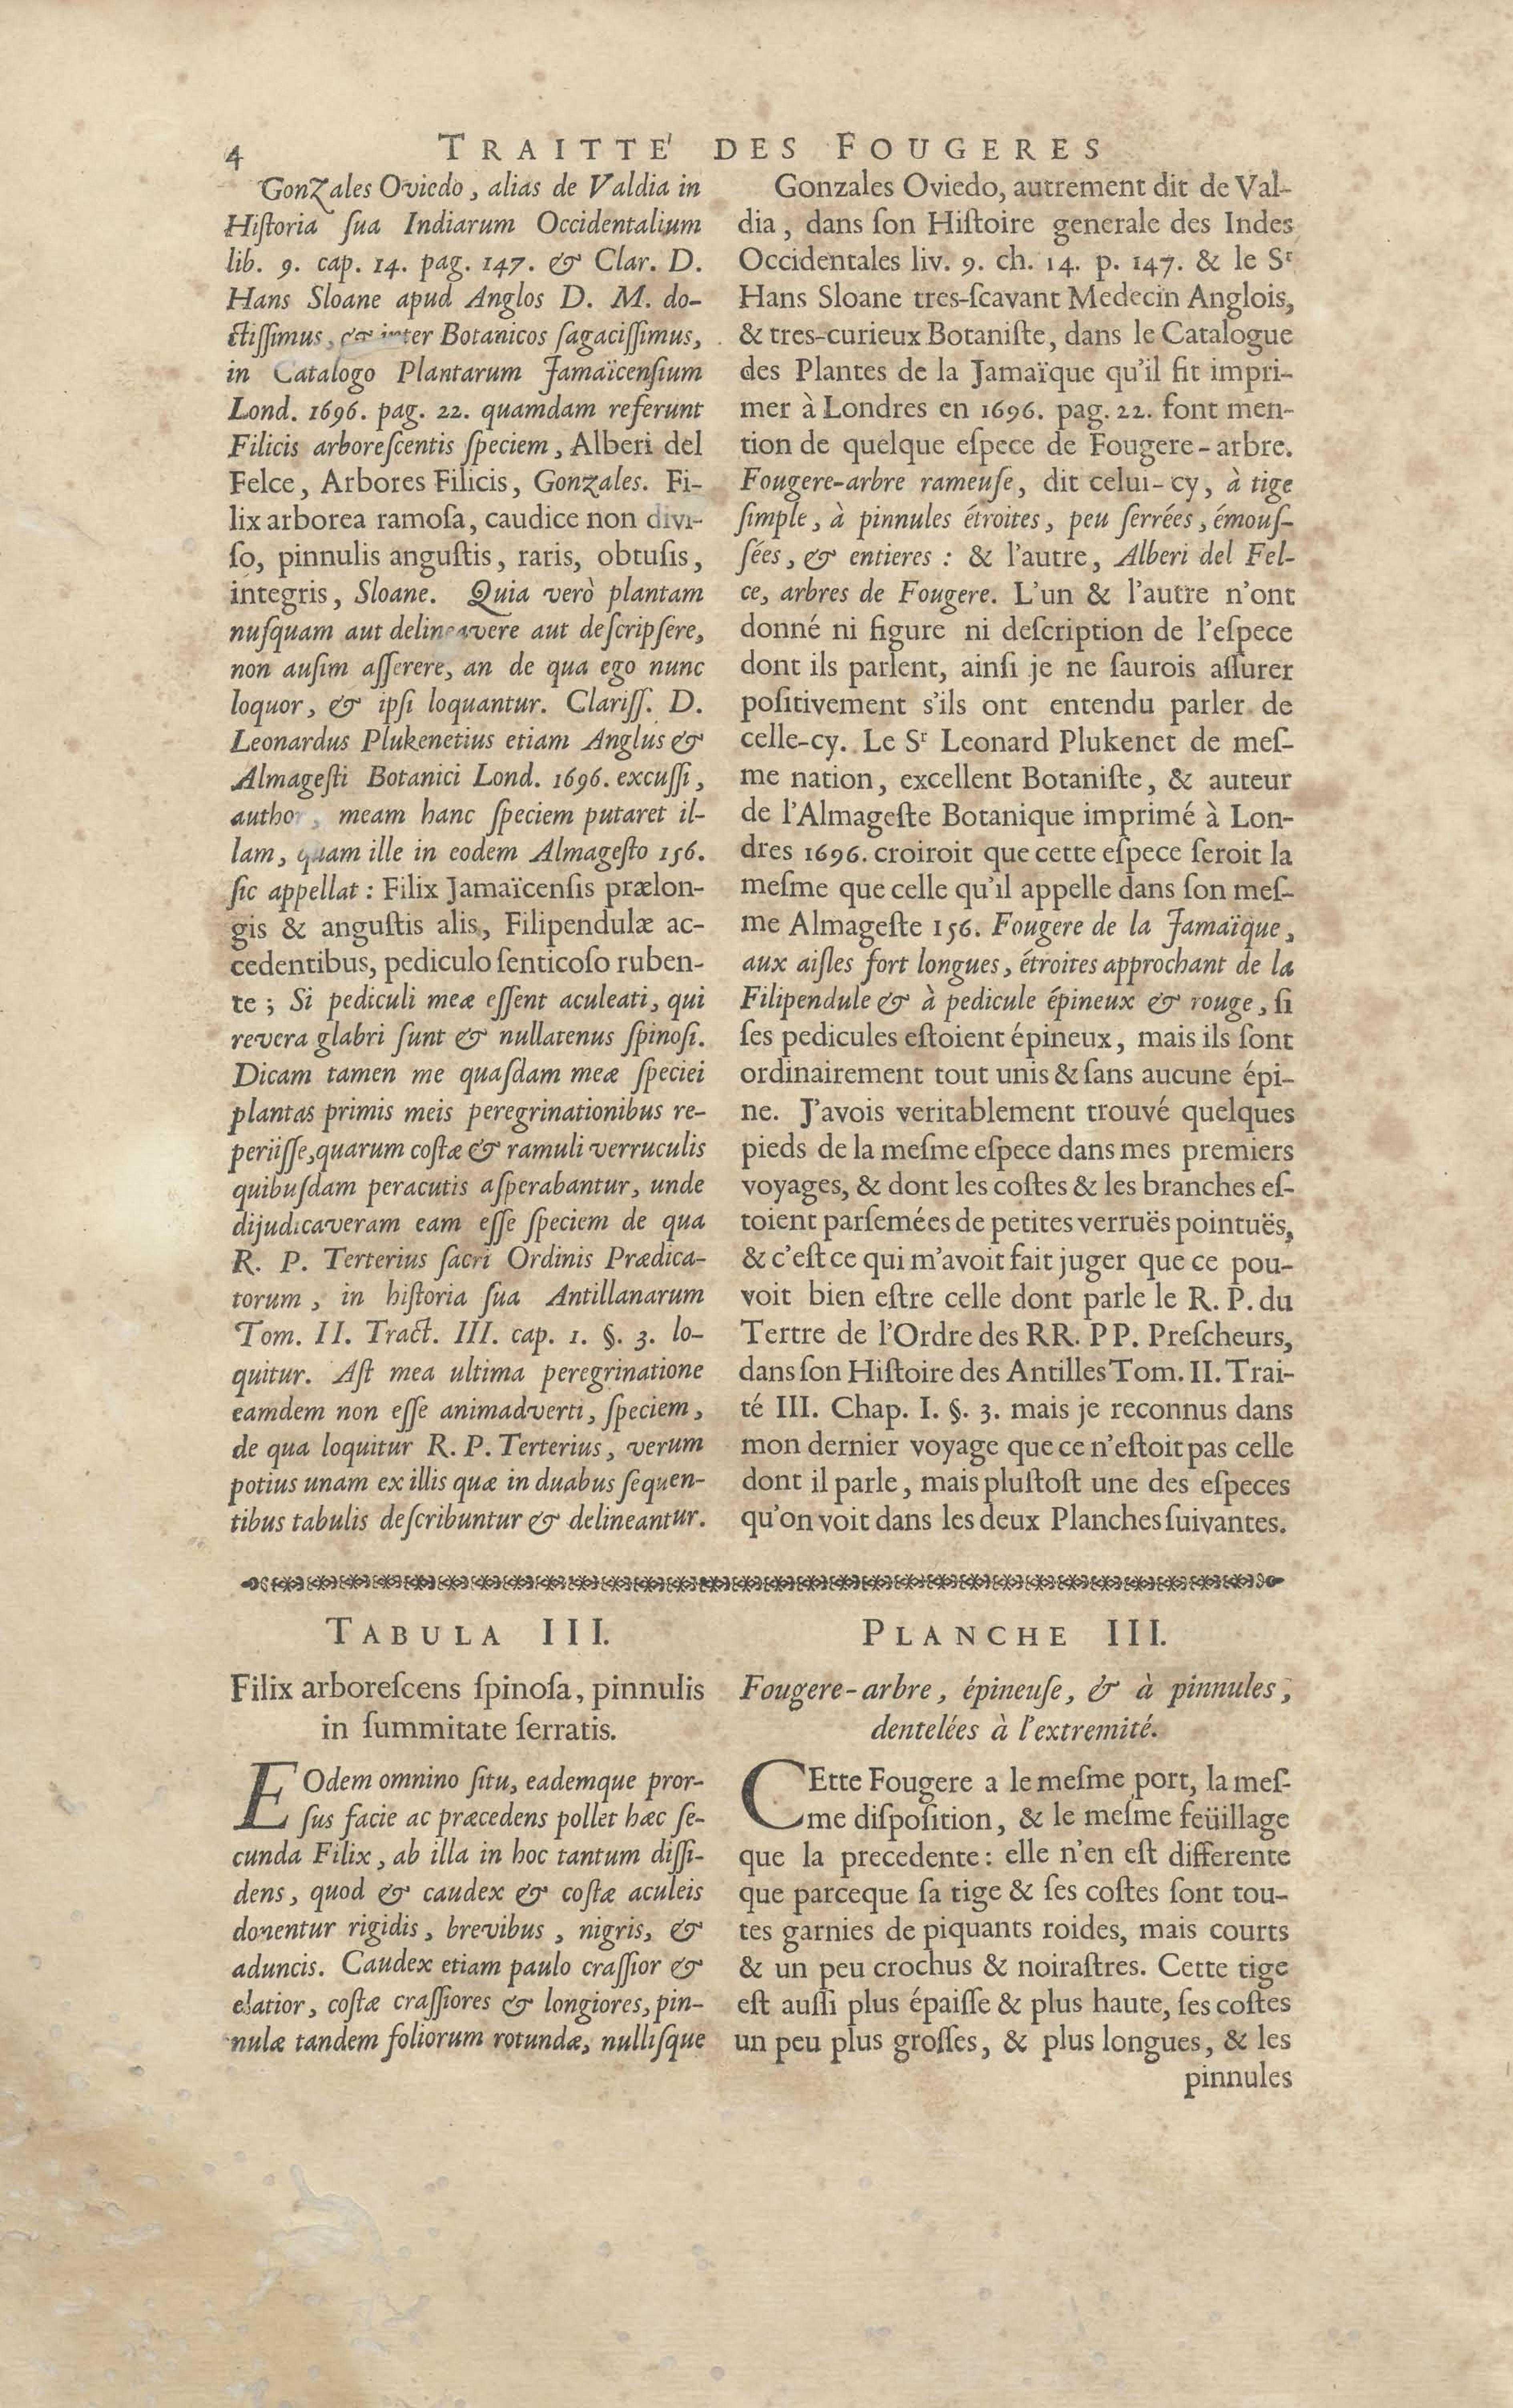 4
TRAITTE' DES FOUGERES
Gonzales Oviedo, alias de Valdia in
Hiſtoria ſua Indiarum Occidentalium
lib. 9. cap. 14. pag. 147. & Clar. D.
Hans Sloane apud Anglos D. M. do-
ctiſſimus, & inter Botanicos ſagaciſſimus,
in Catalogo Plantarum Jamaïcenſium
Lond. 1696. pag. 22. quamdam referunt
Filicis arboreſcentis ſpeciem, Alberi del
Felce, Arbores Filicis, Gonzales. Fi-
lix arborea ramoſa, caudice non divi-
ſo, pinnulis anguſtis, raris, obtuſis,
integris, Sloane. Quia verò plantam
nuſquam aut delineavere aut deſcripſere,
non auſim aſſerere, an de qua ego nunc
loquor, & ipſi loquantur. Clariſſ. D.
Leonardus Plukenetius etiam Anglus &
Almageſti Botanici Lond. 1696. excuſſi,
author, meam hanc ſpeciem putaret il-
lam, quam ille in eodem Almageſto 156.
ſic appellat : Filix Jamaïcenſis prælon-
gis & anguſtis alis, Filipendulæ ac-
cedentibus, pediculo ſenticoſo ruben-
te ; Si pediculi meæ eſſent aculeati, qui
revera glabri ſunt & nullatenus ſpinoſi.
Dicam tamen me quaſdam meæ ſpeciei
plantas primis meis peregrinationibus re-
periiſſe, quarum coſtæ & ramuli verruculis
quibuſdam peracutis aſperabantur, unde
dijudicaveram eam eſſe ſpeciem de qua
R. P. Terterius ſacri Ordinis Prædica-
torum, in hiſtoria ſua Antillanarum
Tom. II. Tract. III. cap. 1. §. 3. lo-
quitur. Aſt mea ultima peregrinatione
eamdem non eſſe animadverti, ſpeciem,
de qua loquitur R. P. Terterius, verum
potius unam ex illis quæ in duabus ſequen-
tibus tabulis deſcribuntur & delineantur.
Gonzales Oviedo, autrement dit de Val-
dia, dans ſon Hiſtoire generale des Indes
Occidentales liv. 9. ch. 14. p. 147. & le Sr
Hans Sloane tres-ſcavant Medecin Anglois,
& tres-curieux Botaniſte, dans le Catalogue
des Plantes de la Jamaïque qu'il fit impri-
mer à Londres en 1696. pag. 22. font men-
tion de quelque eſpece de Fougere-arbre.
Fougere-arbre rameuſe, dit celui-cy, à tige
ſimple, à pinnules étroites, peu ſerrées, émouſ-
ſées, & entieres : & l'autre, Alberi del Fel-
ce, arbres de Fougere. L'un & l'autre n'ont
donné ni figure ni deſcription de l'eſpece
dont ils parlent, ainſi je ne ſaurois aſſurer
poſitivement s'ils ont entendu parler de
celle-cy. Le Sr Leonard Plukenet de meſ-
me nation, excellent Botaniſte, & auteur
de l'Almageſte Botanique imprimé à Lon-
dres 1696. croiroit que cette eſpece ſeroit la
meſme que celle qu'il appelle dans ſon meſ-
me Almageſte 156. Fougere de la Jamaïque,
aux aiſles fort longues, étroites approchant de la
Filipendule & à pedicule épineux & rouge, ſi
ſes pedicules eſtoient épineux, mais ils ſont
ordinairement tout unis & ſans aucune épi-
ne. J'avois veritablement trouvé quelques
pieds de la meſme eſpece dans mes premiers
voyages, & dont les coſtes & les branches eſ-
toient parſemées de petites verruës pointuës,
& c'eſt ce qui m'avoit fait juger que ce pou-
voit bien eſtre celle dont parle le R. P. du
Tertre de l'Ordre des RR. PP. Preſcheurs,
dans ſon Hiſtoire des Antilles Tom. II. Trai-
té III. Chap. I. §. 3. mais je reconnus dans
mon dernier voyage que ce n'eſtoit pas celle
dont il parle, mais pluſtoſt une des eſpeces
qu'on voit dans les deux Planches ſuivantes.
TABULA III.
Filix arboreſcens ſpinoſa, pinnulis
in ſummitate ſerratis.
EOdem omnino ſitu, eademque pror-
ſus facie ac præcedens pollet hæc ſe-
cunda Filix, ab illa in hoc tantum diſſi-
dens, quod & caudex & coſtæ aculeis
donentur rigidis, brevibus, nigris, &
aduncis. Caudex etiam paulo craſſior &
elatior, coſtæ craſſiores & longiores, pin-
nulæ tandem foliorum rotundæ, nulliſque
PLANCHE III.
Fougere-arbre, épineuſe, & à pinnules,
dentelées à l'extremité.
CEtte Fougere a le meſme port, la meſ-
me diſpoſition, & le meſme feüillage
que la precedente : elle n'en eſt differente
que parceque ſa tige & ſes coſtes ſont tou-
tes garnies de piquants roides, mais courts
& un peu crochus & noiraſtres. Cette tige
eſt auſſi plus épaiſſe & plus haute, ſes coſtes
un peu plus groſſes, & plus longues, & les
pinnules